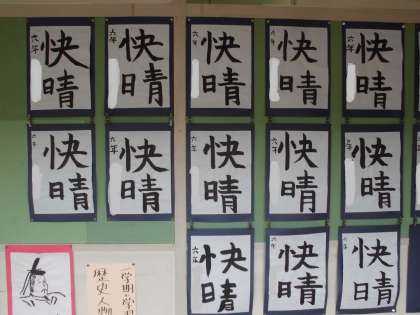 快晴
六年
快晴
六年
快晴
六年
快晴
六年
快晴
六年
快晴
六年
快晴
六年
快晴
六年
快晴
六年
快晴
六年
快晴
六年
快晴
六年
快晴
六年
学期学習
歴史人物